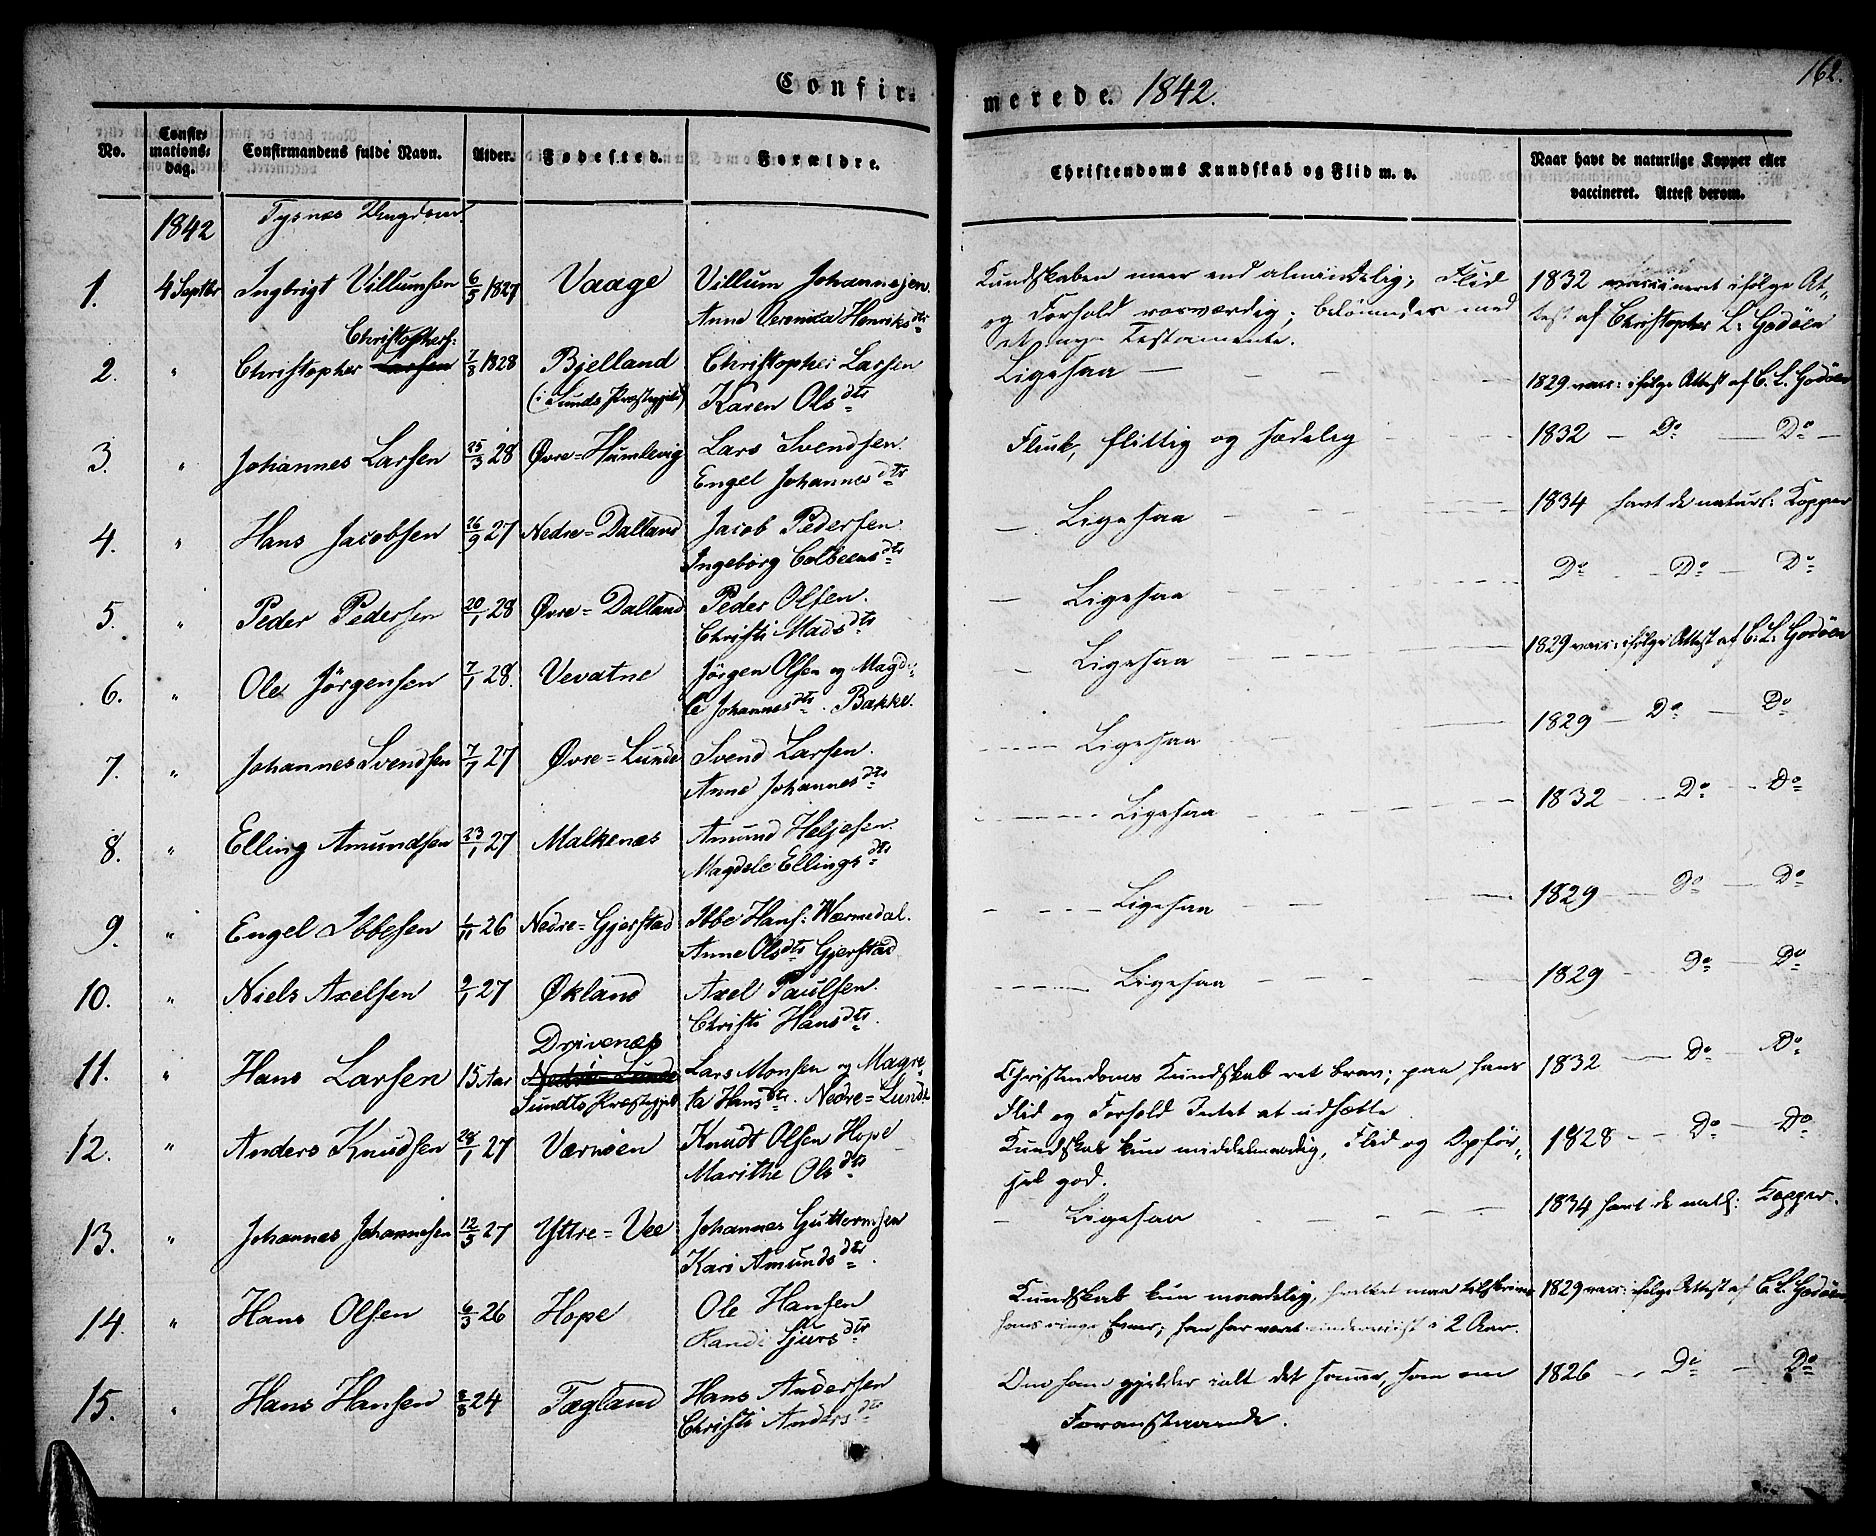 Confir-
merede. 1842.
162.
No.
Confir-
mations-
dag.
Confirmandens fulde Navn.
Alder.
Fødested.
Forældre.
Christendoms Kundskab og Flid m. v.
Naar havt de naturlige Kopper eller
vaccineret. Attest derom.
1842 Tysnæs Ungdom
1. 4 Septbr Ingbrigt Villumsen 6/5 1827 Vaage Villum Johannesen.
Anne Verenica Henriksdtr
Kundskaben meer end almindelig; Flid
og Forhold roesværdig; belønnedes med
et nyt Testamente.
1832 vaccineret ifølge At-
test af Christopher L: Godøen
Christophers:
2. " Christopher Larsen 7/3 1828 Bjelland Christopher Larsen
(i Sunds Præstegjeld) Karen Olsdtr
Ligesaa
1829 vacc: ifølge Attest af C. L. Godøen
3. " Johannes Larsen 25/3 28 Øvre=Humlevig Lars Svendsen.
Engel Johannesdtr
Flink, flittig og sædelig
1832 — Do — Do —
4. " Hans Jacobsen 26/9 27 Nedre=Dalland Jacob Pedersen.
Ingeborg Colbeensdtr
— Ligesaa
1834 havt de naturl: Kopper
5. " Peder Pedersen 20/1 28 Øvre=Dalland Peder Olsen.
Christi Madsdtr
— Ligesaa
Do — Do — Do
6. " Ole Jörgensen 7/1 28. Vevatne Jörgen Olsen og Magde-
le Johannesdtr. Bakke.
— Ligesaa
1829 vacc: ifølge Attest af C. L: Godøen
7. " Johannes Svendsen 7/7 27 Øvre=Lunde Svend Larsen.
Anne Johannesdtr
Ligesaa
1829 — Do — Do
8. " Elling Amundsen 23/1 27 Malkenæs Amund Heljesen.
Magdele Ellingsdtr
Ligesaa
1832 — Do — Do
9. " Engel Ibbesen 1/11 26 Nedre=Gjerstad Ibbe Hans: Wærmedal.
Anne Olsdtr Gjerstad
Ligesaa
1829 — Do — Do
10. " Niels Axelsen 9/1 27 Økland Axel Paulsen.
Christi Hansdtr.
Ligesaa
1829 — Do — Do
Drivenæs
11. " Hans Larsen 15 Aar Nedre=Lunde Lars Monsen og Magre-
Sundts Præstegjeld ta Hansdtr. Nedre=Lunde
Christendoms Kundskab ret brav; paa hans
Flid og Forhold Intet at udsætte.
1832 — Do — Do
12. " Anders Knudsen 28/1 27 Værnöen Knudt Olsen Hope
Marithe Olsdtr
Kundskab kun middelmaadig, Flid og Opför-
sel god.
1828 — Do — Do
13. " Johannes Johannesen 12/5 27 Yttre=Vee Johannes Guttormsen
Kari Amundsdtr.
— Ligesaa
1834 havt de natl: Kopper.
14. " Hans Olsen 6/3 26 Hope Ole Hansen
Randi Sjursdtr
Kundskab kun maadelig, hvilket maa tilskrives
hans ringe Evner; han har været underviist i 2 Aar.
1829 vacc: ifølge Attest af C. L. Godøen
15. " Hans Hansen 8/8 24 Tægland Hans Andersen
Christi Andersdtr
Om ham gjelder ialt det samme, som om
Foranstaaende.
1826 — Do — Do